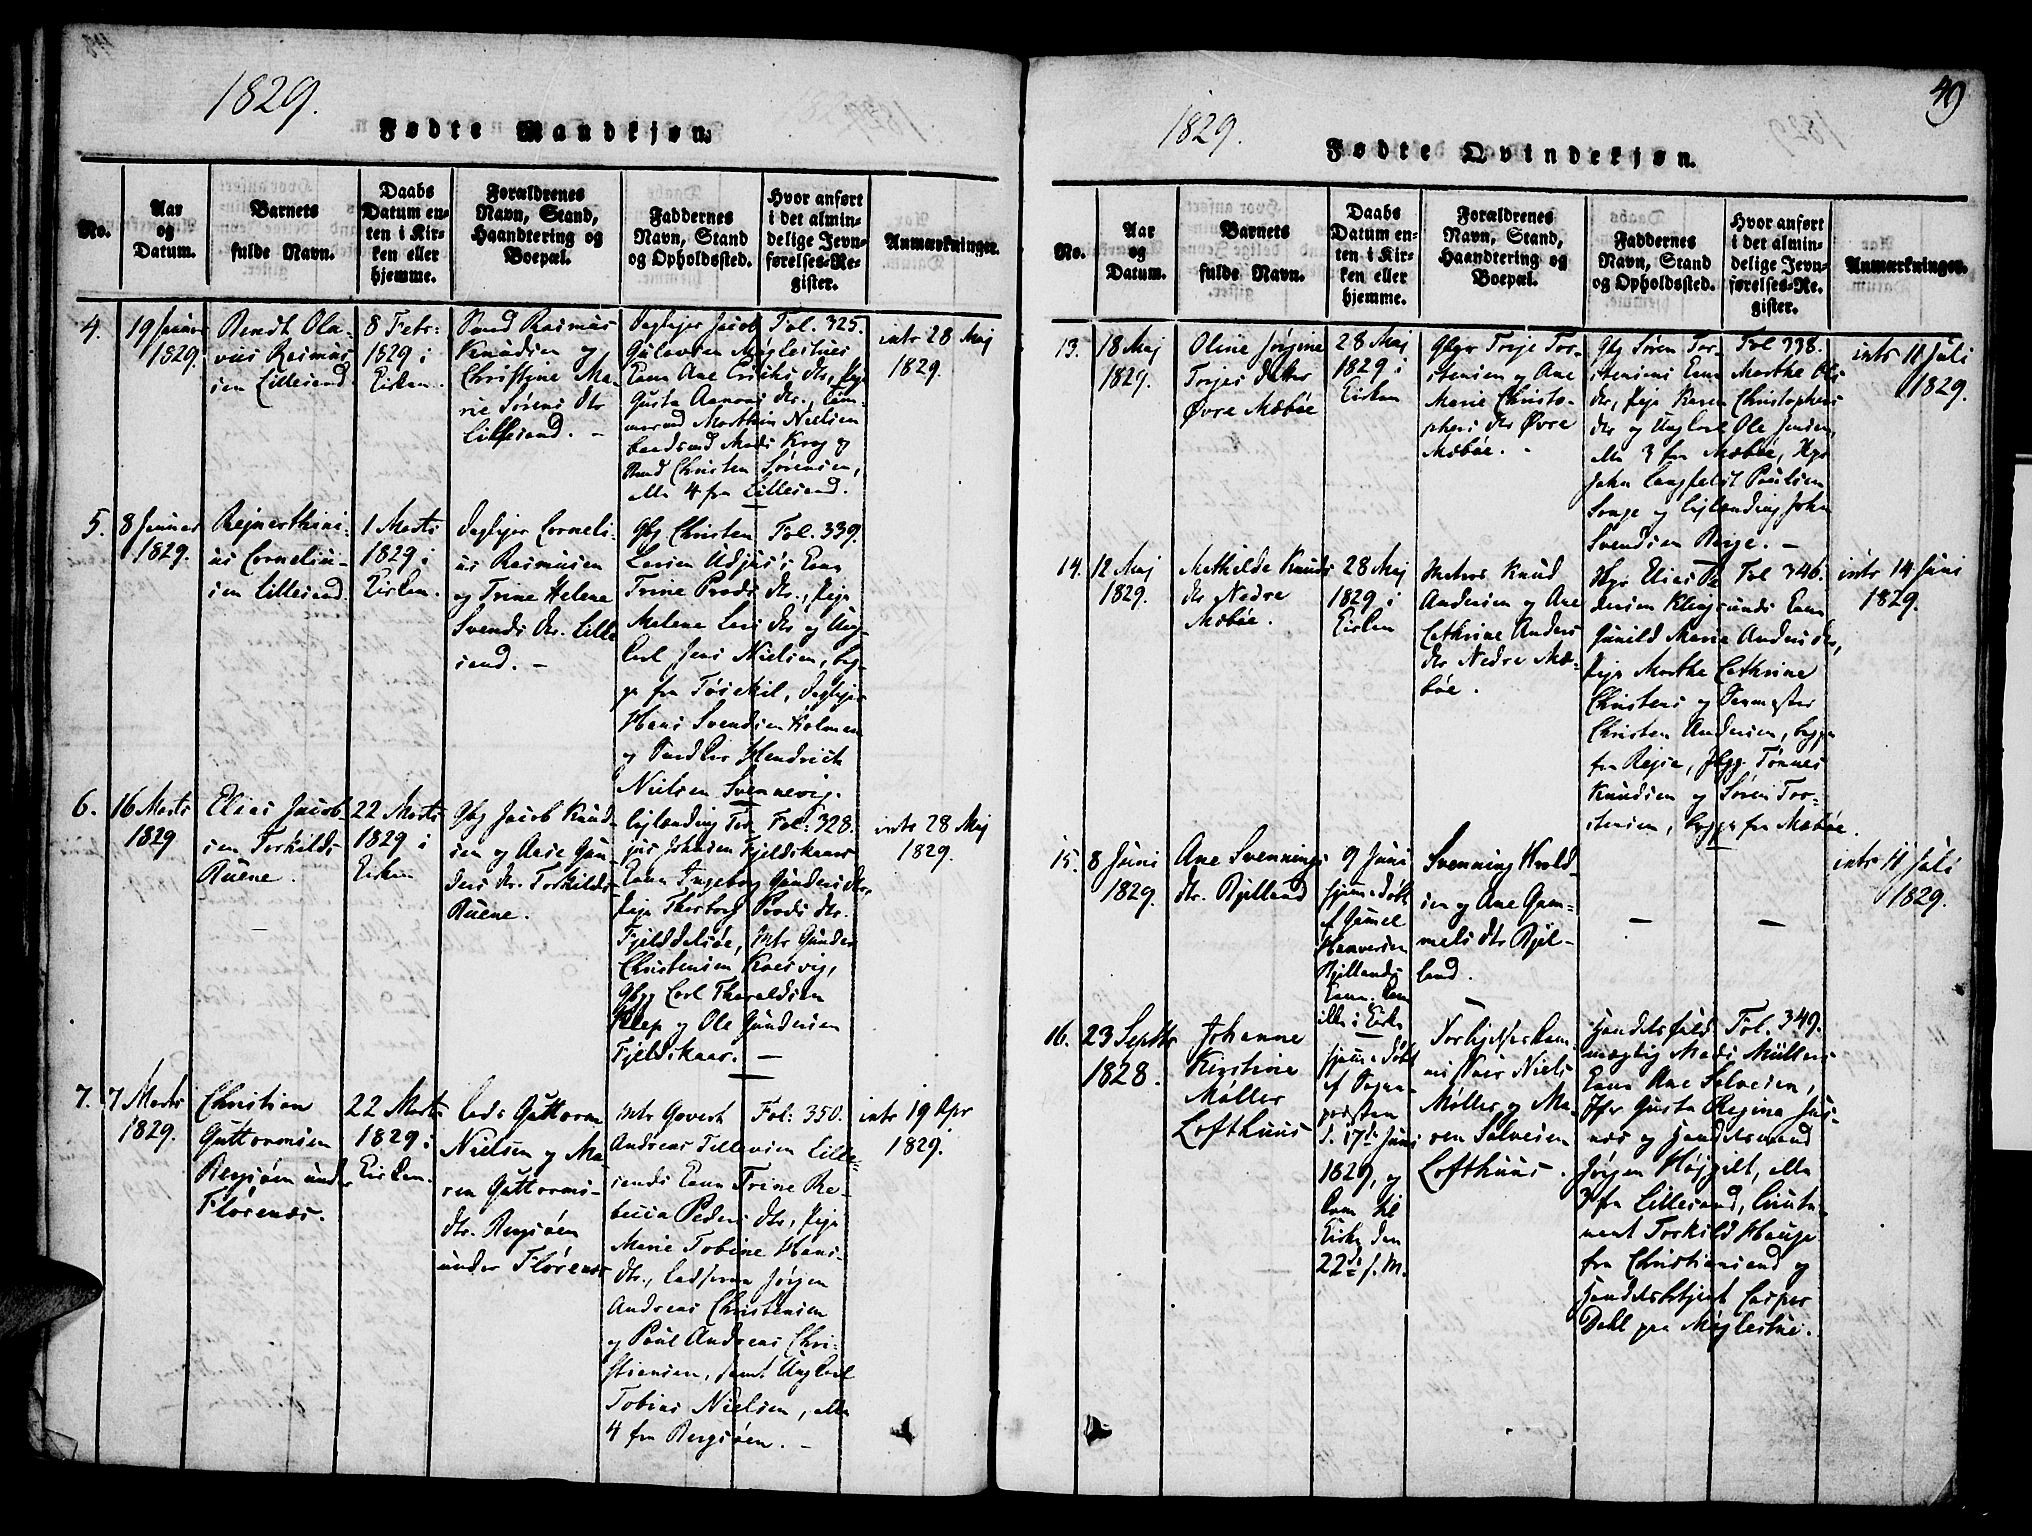 1829.
Fødte Mandkjøn.
No.
Aar
og
Datum.
Barnets
fulde Navn.
Daabs
Datum en-
ten i Kir-
ken eller
hjemme.
Forældrenes
Navn, Stand,
Haandtering og
Boepæl.
Faddernes
Navn, Stand
og Opholdssted.
Hvor anført
i det almin-
delige Jevn-
førelses-Re-
gister.
Anmærkninger.
4.
19 Januar
1829.
Bendt Ola-
vus Rasmus
sen Lillesand.
8 Febr:
1829 i
Kirken.
Rasmus
Knudsen og
Christine Ma-
rie Sørens dtr
Lillesand. -
Jacob
Gulovsen Møglestues
Kone Ane Eriks dtr, Pige
Gusta Aanons dtr.,
Morthen Nielsen
Mads Krog og
Christen Sørensen,
alle 4 fra Lillesand.
Fol. 325.
intr 28 Maj
1829.
5.
8 Januar
1829.
Rejnerthini-
us Corneliu-
sen Lillesand.
1 Marts
1829 i
Kirken.
Corneli-
us Rasmusen
og Trine Helene
Svends dtr. Lille
sand. -
Gbg Christen
Larsen Udjus's Kone
Trine Prods dtr., Pige
Malene Lars dtr og Ung-
karl Jens Nielsen, beg-
ge fra Tøsekil,
Hans Svendsen Holmen
og Hendrich
Nielsen Svennevig.
Fol. 339.
6.
16 Marts
1829
Elias Jacob-
sen Torkilds
Ruene.
22 Marts
1829 i
Kirken
Gbg Jacob Knud-
sen og Aase Gun-
ders dtr. Torkilds
Ruene.
Lejlænding Ter-
jus Johnsen Fjeldskaars
Kone Ingeborg Gunders dtr
Pige Thorborg Prods dtr.
Fjelddalsøe, Mtr Gunder
Christensen Kaasvig,
Gbgg Carl Tharaldsen
Kleep og Ole Gundersen
Fjeldskaar. -
Fol: 328.
intr 28 Maj
1829.
7.
7 Marts
1829.
Christian
Guttormsen
Bergsøen under
Flørenæs.
22 Marts
1829 i
Kirken.
Lods Guttorm
Nielsen og Ma-
ren Guttorms-
dtr. Bergsøen
under Flørenæs
Mtr Govert
Andreas Tellevsen Lille-
sands Kone Trine Re-
becca Peders dtr, Pige
Marie Tobine Hans-
dtr., Jørgen
Andreas Christensen
og Poul Andreas Chri-
stiansen, samt Ungkarl
Tobias Nielsen, alle
4 fra Bergsøen. -
Fol: 350.
intr 19 Apr
1829.
49
1829.
Fødte Qvindekjøn.
No.
Aar
og
Datum.
Barnets
fulde Navn.
Daabs
Datum en-
ten i Kir-
ken eller
hjemme.
Forældrenes
Navn, Stand,
Haandtering og
Boepæl.
Faddernes
Navn, Stand
og Opholdssted.
Hvor anført
i det almin-
delige Jevn-
førelses-Re-
gister.
Anmærkninger.
13.
18 Maj
1829.
Oline Jørgine
Terjes datter
Øvre Mæbøe
28 Maj
1829 i
Kirken
Gbgr Terje Tor-
stensen og Ane
Marie Christo-
phers dtr Øvre
Mæbøe.
Gbg Søren Tor-
stensens Kone Marthe Ols
dtr, Pige Karen Christophers
dtr og Ungkarl Ole Jensen,
alle 3 fra Mæbøe,
John Langfeldt Paulsen
Songe og Lejlænding John
Svendsen Berge. -
Fol 338.
intr 11 Juli
1829.
14.
12 Maj
1829.
Mathilde Knuds
dtr Nedre
Mæbøe.
28 Maj
1829 i
Kirken
Matros Knud
Andersen og Ane
Cathrine Anders
dtr Nedre Mæ-
bøe.
Elias Pe
dersen Klegsunds Kone
Gunild Marie Anders dtr,
Pige Marthe Cathrine
Christens og
Christen Andersen, begge
fra Rejse, Gbgg Tønnes
Knudsen og Søren Tor-
stensen, begge fra Mæbøe.
Fol 346.
intr 14 Juni
1829.
15.
8 Juni
1829.
Ane Svennings
dtr. Bjelland
9 Juni
hjemedøbt
af Gamel
Haaversen
Bjellands
Kone. Kom
ikke i Kirke
Svenning Knud-
sen og Ane Gam-
mels dtr Bjel-
land.
-
-
intr 11 Juli
1829.
16.
23 Septbr
1828.
Johanne
Kirstine
Møller
Lofthuus
hjemedøbt
af Sogne-
præsten
d. 17de Juni
1829, og
kom til
Kirke den
22de s. M.
Niels
Møller og Ma-
ren Salvesen
Lofthuus.
Handelsfuld-
mægtig Mads Müllers
Kone Ane Salvesen,
Jfr Gusta Regina Jus-
nes og Handelsmand
Jørgen Højgilt, alle
3 fra Lillesand, Lieute-
nant Torkild Hauge
fra Christiansand og
Handelsbetjent Casper
Dahl paa Møglestue.
Fol. 349.